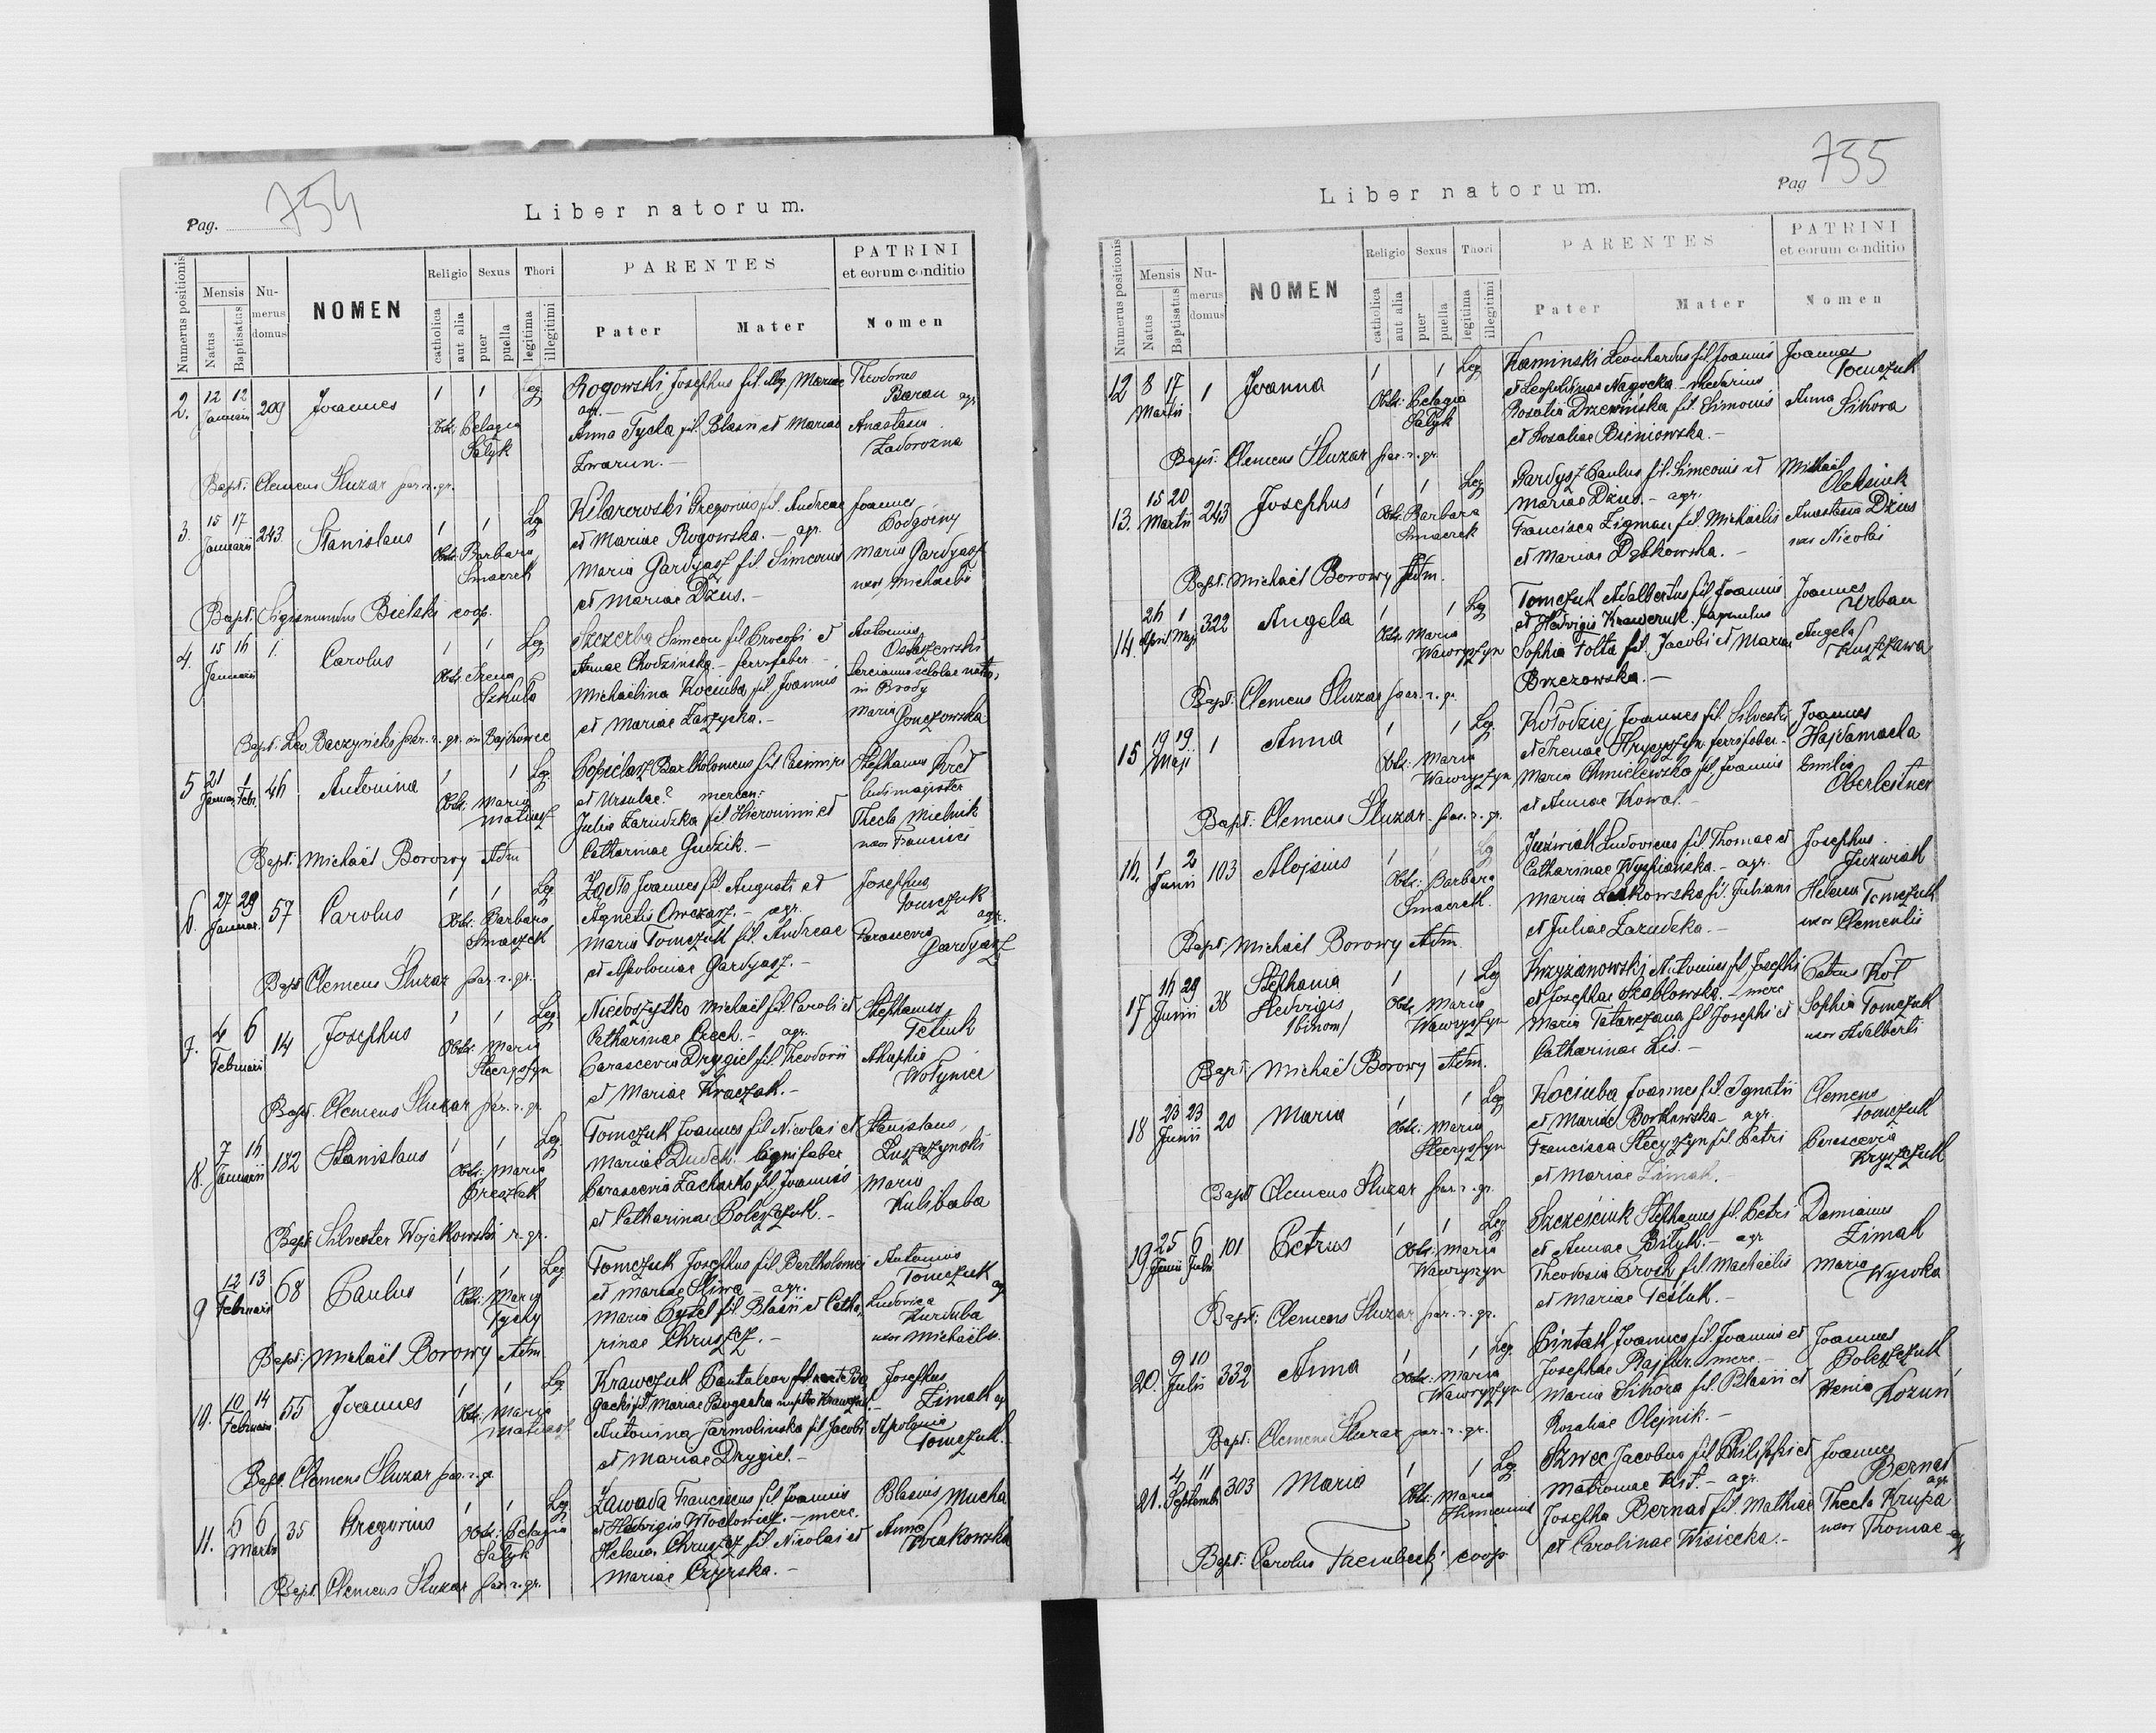 Pag. 754
Liber natorum.
Numerus positionis
Mensis
Natus
Baptisatus
Numerus domus
NOMEN
Religio
catholica
aut alia
Sexus
puer
puella
Thori
legitima
illegitimi
PARENTES
Pater
Mater
PATRINI
et eorum conditio
Nomen
2. 12 12 Januarii 209 Joannes 1 1 Leg
Obst: Pelagia Salyk
Rogowski Josephus fil. illeg Mariae
agr.
Anna Tycka fil. Blasii et Mariae
Zwarun. -
Theodorus
Baran agr
Anastasia
Zadorozna
Bapt: Clemens Sluzar par. r. gr.
3. 15 17 Januarii 243 Stanislaus 1 1 Leg
Obst: Barbara Smaczek
Kilarowski Gregorius fil. Andreae
et Mariae Rogowska. - agr.
Maria Gardyasz fil. Simeonis
et Mariae Dzus. -
Joannes
Podgórny
Maria Gardyasz
uxor Michaelis
Bapt: Sigismundus Bielski coop.
4. 15 16 Januarii 1. Carolus 1 1 Leg
Obst: Irena Szkuta
Szczerba Simeon fil. Procopi et
Annae Chodzińska - ferrifaber -
Michaëlina Kociuba fil. Joannis
et Mariae Zarzycka. -
Antonius
Ostaszewski
in Brody
Maria
Gonczowska
Bapt: Leo Baczyński par. r. gr. in Bajkowce
5 21 Januar. 1 Febr. 46 Antonina 1 1 Leg
Obst: Maria Matiasz
Popielarz Bartholomeus fil. Casimiri
et Ursulae? mercen:
Julia Zarudzka fil. Hieronimi et
Catharinae Gudzik. -
Stephanus Kret
ludimagister
Thecla Mielnik
uxor Francisci
Bapt: Michaël Borowy Adm
6. 27 29 Januar. 57 Carolus 1 1 Leg
Obst: Barbara Smaczek
Zadło Joannes fil. Augusti et
Agnetis Owczarz. - agr.
Maria Tomczuk fil. Andreae
et Apoloniae Gardyasz. -
Josephus
Tomczuk
agr.
Parascevia
Gardyasz
Bapt Clemens Sluzar par. r. gr.
7. 4 6 Februarii 14 Josephus 1 1 Leg
Obst: Maria Stecyszyn
Niedoszytko Michaël fil. Caroli et
Catharinae Czech. - agr.
Parascevia Drygiel fil. Theodorii
et Mariae Kraczak. -
Stephanus
Tetiuk
Ahaphia
Wołyniec
Bapt. Clemens Sluzar par. r. gr.
8. 7 16 Januarii 182 Stanislaus 1 1 Leg.
Obst: Maria
Tomczuk Joannes fil Nicolai et
Mariae Dudek. lignifaber
Parascevia Zacharko fil. Joannis
et Catharinae Boleszczuk. -
Stanislaus
Zuszczynski
Maria
Kulibaba
Bapt: Silvester Wojakowski r. gr.
9 12 13 Februarii 68 Paulus 1 1 Leg
Obst: Maria Tycky
Tomczuk Josephus fil Bartholomei
et Mariae Sliwa - agr.
Maria Cyzel fil Blasii et Catha
rinae Chruszcz. -
Antonius
Tomczuk
agr
Ludovica
Kurduba
uxor Michaëlis
Bapt: Michaël Borowy Adm
10. 10 14 Februarii 55 Joannes 1 1 Leg.
Obst: Maria Matiasz
Krawczuk Pantaleon
Mariae Bogacka nupta Krawczuk. -
Antonina Jarmolinska fil Jacobi
et Mariae Drygiel. -
Josephus
Zimak agr
Apolonia
Tomczuk.
Bapt. Clemens Sluzar par. r. gr
11. 6 6 Martii 35 Gregorius 1 1 Leg
Obst: Pelagia Salyk
Zawada Franciscus fil Joannis
et Hedvigis Włochowicz. - merc.
Helena Chruszcz fil. Nicolai et
Mariae Czyrska. -
Blasius Mucha
Anna
Krakowska
Bapt Clemens Sluzar par. r. gr.
Liber natorum.
Pag 755
Numerus positionis
Mensis
Natus
Baptisatus
Numerus domus
NOMEN
Religio
catholica
aut alia
Sexus
puer
puella
Thori
legitima
illegitimi
PARENTES
Pater
Mater
PATRINI
et eorum conditio
Nomen
12 8 17 Martii 1 Joanna 1 1 Leg
Obst: Pelagia Salyk
Kaminski Leonhardus fil Joannis
et Leopoldinae Nagocka -
Rosalia Drzewińska fil. Simonis
et Rosaliae Bieniowska. -
Joannes
Tomczuk
Anna
Sikora
Bapt: Clemens Sluzar par. r. gr.
13. 15 20 Martii 243 Josephus 1 1 Leg
Obst: Barbara Smaczek
Gardysz Paulus fil. Simeonis et
Mariae Dzus. - agr.
Francisca Zigman fil. Michaelis
et Mariae Dąbkowska. -
Michaël
Oleksiuk
Anastasia Dzius
uxor Nicolai
Bapt. Michaël Borowy Adm.
14. 26 April 1 Maji 322 Angela 1 1 Leg
Obst: Maria Wawryszyn
Tomczuk Adalbertus fil. Joannis
et Hedvigis Krawczuk. famulus
Sophia Tolta fil. Jacobi et Mariae
Brzezowska. -
Joannes
Urban
Angela
Kuszczawa
Bapt: Clemens Sluzar par. r. gr.
15 19 19 Maji 1 Anna 1 1 Leg
Obst: Maria Wawryszyn
Kołodziej Joannes fil. Silvestri
et Irenae Hrycyszyn ferrifaber -
Maria Chmielewska fil. Joannis
et Annae Kowal. -
Joannes
Hajdamacka
Emilia
Oberlestner
Bapt: Clemens Sluzar par. r. gr.
16. 1 2 Junii 103 Alojsius 1 1 Leg
Obst: Barbara Smaczek.
Juzwiak Ludovicus fil Thomae et
Catharinae Wyspiańska. - agr.
Maria Laskowska fil. Juliani
et Juliae Zarudzka. -
Josephus
Juzwiak
Helena Tomczuk
uxor Clementis
Bapt Michaël Borowy Adm
17 16 29 Junii 38 Stephania
Hedvigis
/binom/ 1 1 Leg
Obst: Maria Wawryszyn
Krzyzanowski Antonius fil Josephi
et Josephae Szablowska. - merc
Maria Tatarczana fil Josephi et
Catharinae Lis. -
Petrus Kot
Sophia Tomczuk
uxor Adalberti
Bapt: Michaël Borowy Adm.
18 23 23 Junii 20 Maria 1 1 Leg
Obst: Maria Stecyszyn
Kociuba Joannes fil. Ignatii
et Mariae Borkowska - agr.
Francisca Stecyszyn fil Petri
et Mariae Zimak.
Clemens
Tomczuk
Parascevia
Kryszczuk
Bapt Clemens Sluzar par. r. gr.
19 25 Junii 6 Julii 101 Petrus 1 1 Leg
Obst: Maria Wawryszyn
Szcześciuk Stephanus fil. Petri
et Annae Biłyk. - agr
Theodosia Groch fil Machaelis
et Mariae Teśluk. -
Damianus
Zimak
Maria
Wysocka
Bapt: Clemens Sluzar par. r. gr.
20. 9 10 Julii 332 Anna 1 1 Leg
Obst: Maria Wawryszyn
Pintak Joannes fil. Joannis et
Josephae Rajfur. merc. -
Maria Sikora fil. Blasii et
Rozaliae Olejnik. -
Joannes
Boleszczuk
Xenia
Kozuń
Bapt: Clemens Sluzar par. r. gr.
21. 4 11 Septembr. 303 Maria 1 1 Leg
Obst: Maria
Szwec Jacobus fil Philippi et
Matronae Kit. - agr.
Josepha Bernad fil. Mathiae
et Carolinae Wisiecka. -
Joannes
Bernad
agr
Thecla Krupa
uxor Thomae agr
Bapt: Carolus coop